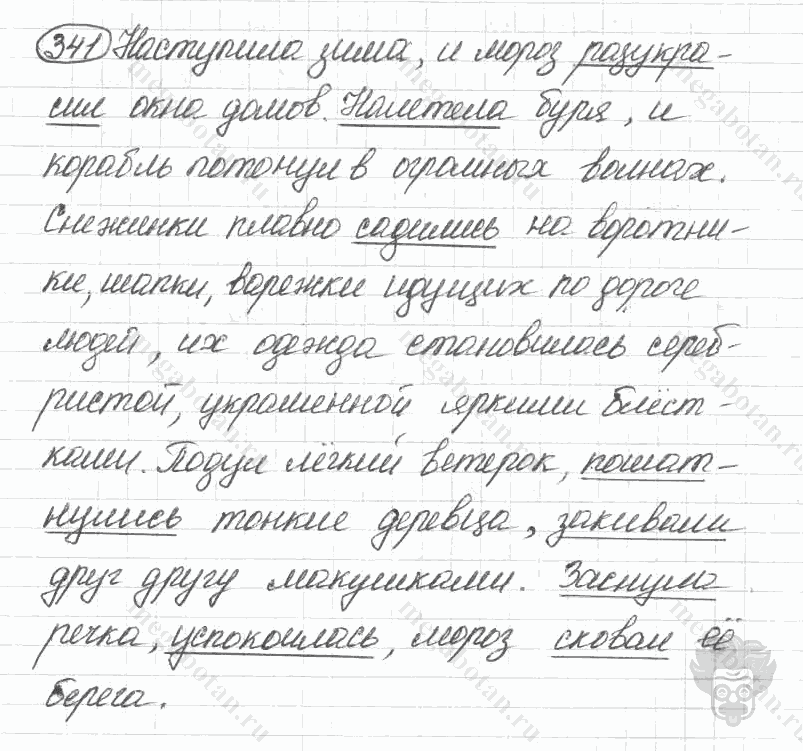 341 Наступила зима, и мороз разукра-
сил окна домов. Налетела буря, и
корабль потонул в огромных волнах.
Снежинки плавно садились на воротни-
ки, шапки, варежки идущих по дороге
людей, их одежда становилась сереб-
ристой, украшенной яркими блёст-
ками. Подул лёгкий ветерок, пошат-
нулись тонкие деревца, закивали
друг другу макушками. Заснула
речка, успокоилась, мороз сковал её
берега.
megabotan.ru